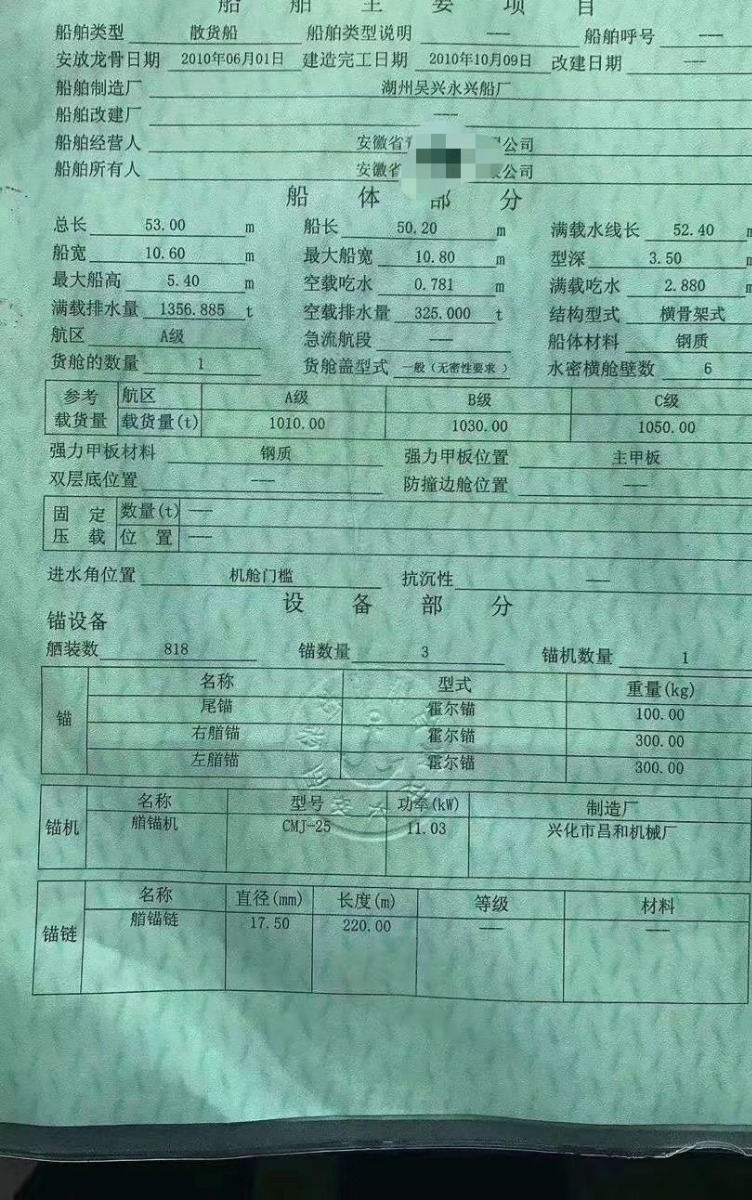 船 舶 主 要 项 目
船舶类型 散货船 船舶类型说明 --- 船舶呼号 ---
安放龙骨日期 2010年06月01日 建造完工日期 2010年10月09日 改建日期 ---
船舶制造厂 湖州吴兴永兴船厂
船舶改建厂 ---
船舶经营人 安徽省 公司
船舶所有人 安徽省 公司
船 体 部 分
总长 53.00 m 船长 50.20 m 满载水线长 52.40 m
船宽 10.60 m 最大船宽 10.80 m 型深 3.50 m
最大船高 5.40 m 空载吃水 0.781 m 满载吃水 2.880 m
满载排水量 1356.885 t 空载排水量 325.000 t 结构型式 横骨架式
航区 A级 急流航段 --- 船体材料 钢质
货舱的数量 1 货舱盖型式 一般（无密性要求 ） 水密横舱壁数 6
参考 航区 A级 B级 C级
载货量 载货量(t) 1010.00 1030.00 1050.00
强力甲板材料 钢质 强力甲板位置 主甲板
双层底位置 --- 防撞边舱位置 ---
固 定 数量(t) ---
压 载 位 置 ---
进水角位置 机舱门槛 抗沉性 ---
设 备 部 分
锚设备
舾装数 818 锚数量 3 锚机数量 1
名称 型式 重量(kg)
尾锚 霍尔锚 100.00
锚 右艏锚 霍尔锚 300.00
左艏锚 霍尔锚 300.00
名称 型号 功率(kW) 制造厂
锚机 艏锚机 CMJ-25 11.03 兴化市昌和机械厂
名称 直径(mm) 长度(m) 等级 材料
锚链 艏锚链 17.50 220.00 --- ---